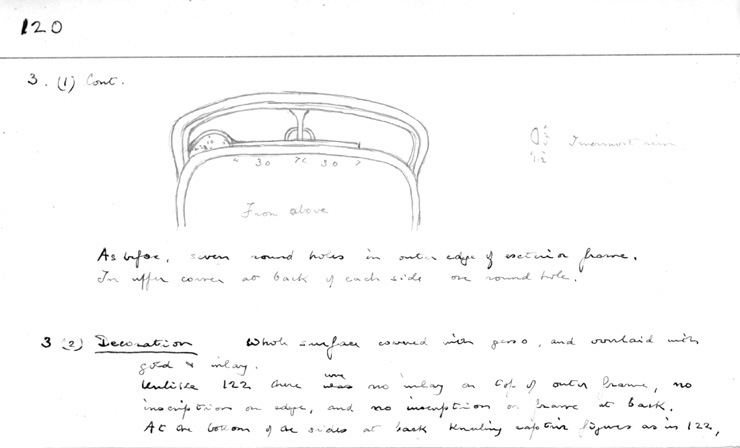 120
3. (1) Cont.
30 30
From above
Innermost
As before, seven round holes in outer edge of exterior frame.
In upper corner at back of each side one round hole.
3 (2) Decoration Whole surface covered with gesso, and overlaid with
gold & inlay.
were
Unlike 122 there was no inlay on top of outer frame, no
inscription on edge, and no inscription on frame at back.
At the bottom of the sides at back kneeling captive figures as in 122,